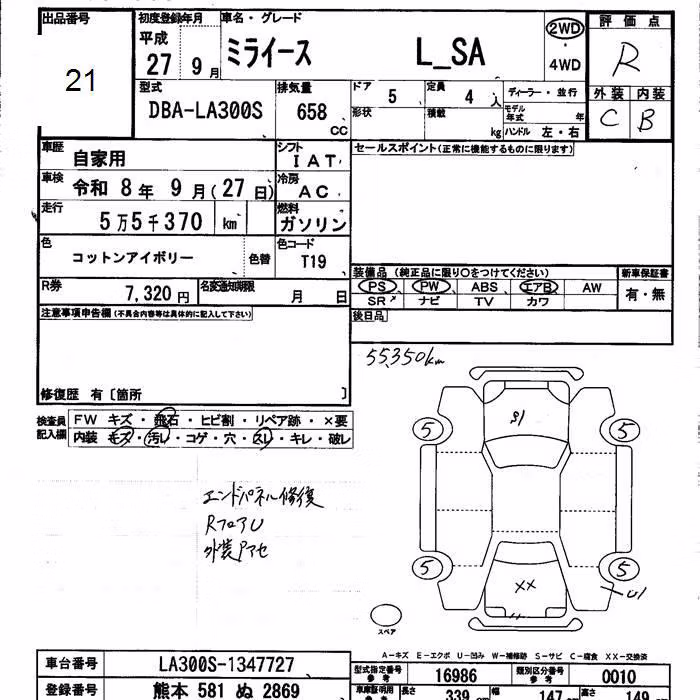 出品番号 初度登録年月 車名・グレード 評価点
21 平成 27 9月 ミライース L_SA 2WD・4WD R
型式 DBA-LA300S 排気量 658 CC
ドア 5 定員 4人 ディーラー・並行 外装 内装
形状 積載 kg モデル年式 年 ハンドル 左・右 C B
車歴 自家用 シフト IAT セールスポイント(正常に機能するものに限ります)
車検 令和 8年 9月(27日) 冷房 AC
走行 5万5千370 km 燃料 ガソリン
色 コットンアイボリー 色替 色コード T19
装備品 (純正品に限り○をつけてください) 新車保証書
R券 7,320円 名変通知期限 月 日 PS PW ABS エアB AW 有・無
SR ナビ TV カワ
注意事項申告欄(不具合内容等は具体的に記入して下さい) 後日品
55,350km
修復歴 有〔箇所 〕
検査員記入欄 FW キズ・飛石・ヒビ割・リペア跡・×要
内装 キズ・汚レ・コゲ・穴・スレ・キレ・破レ
5 5
エンドパネル修復
RフロアU
外装アセ
5 5
XX U1
スペア
A-キズ E-エクボ U-凹み W-補修跡 S-サビ C-腐食 XX-交換済
車台番号 LA300S-1347727 型式指定番号 参考 16986 類別区分番号 参考 0010
登録番号 熊本 581 ぬ 2869 車車証明用 長さ 339 cm 幅 147 cm 高さ 149